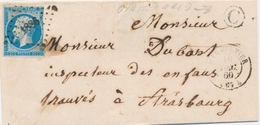 Monsieur
C
Monsieur
Dubost
inspecteur des enfans
trouvés à Strasbourg
60